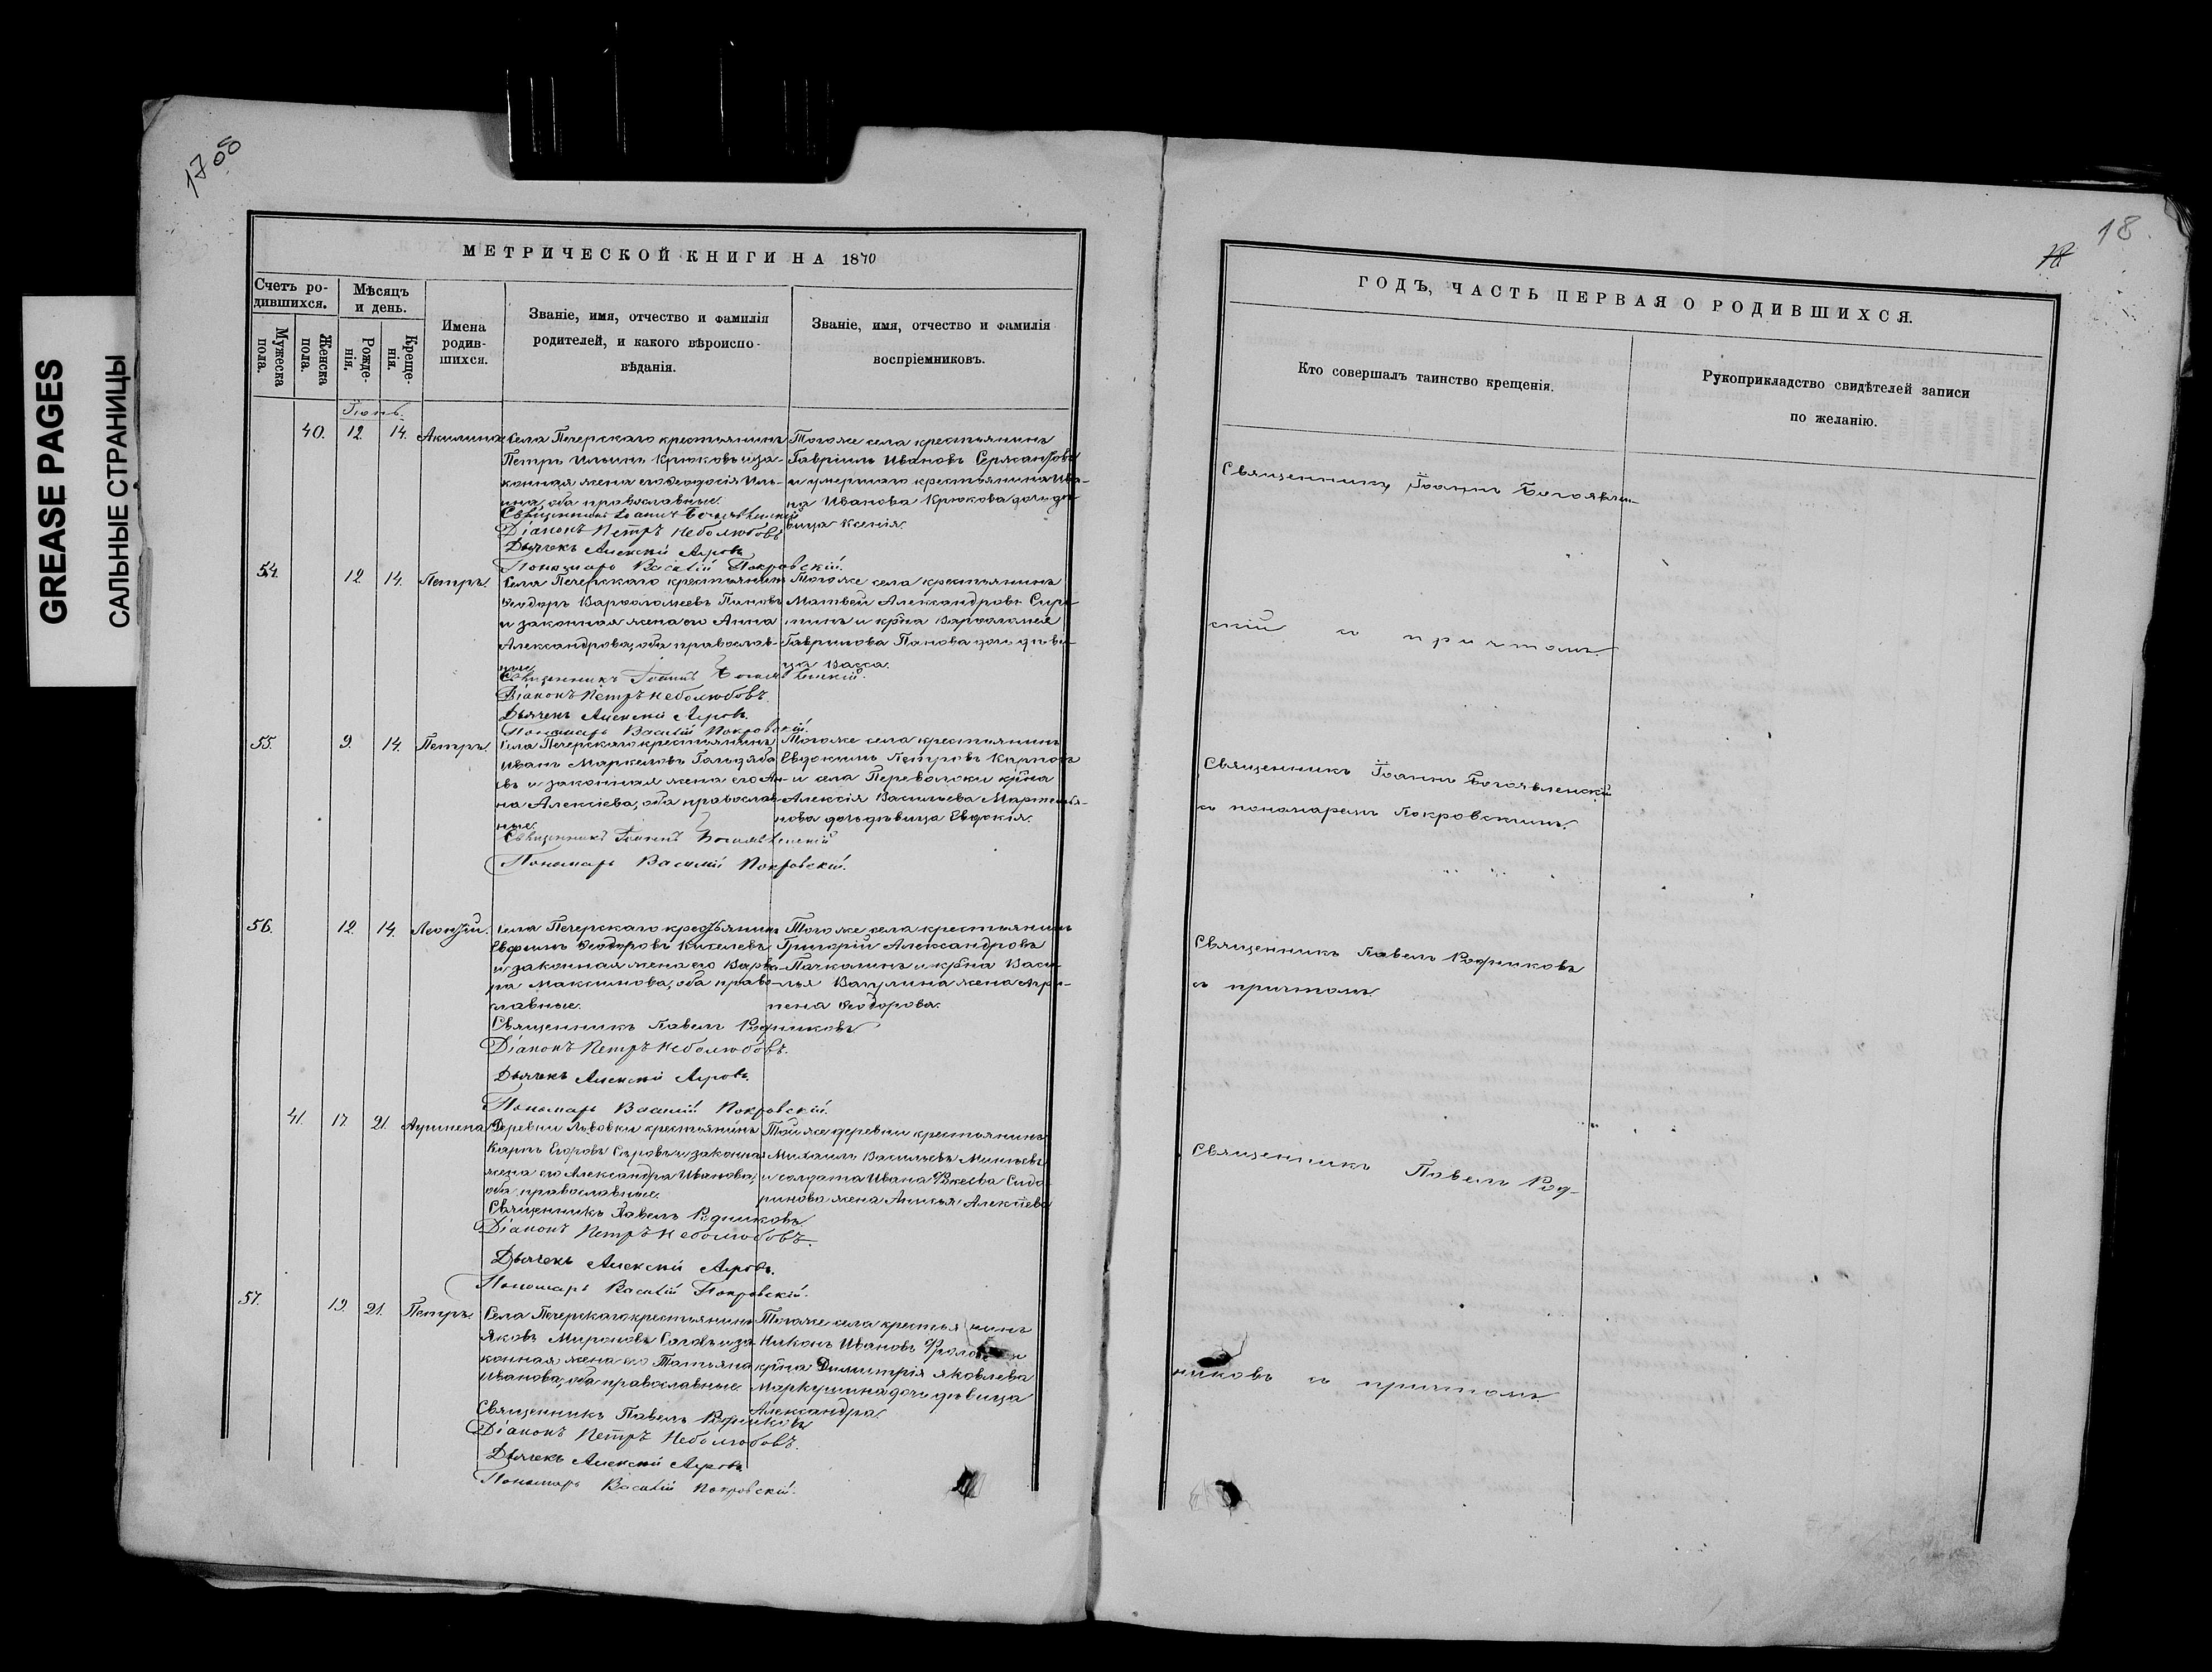 GREASE PAGES
САЛЬНЫЕ СТРАНИЦЫ
18.
МЕТРИЧЕСКОЙ КНИГИ НА 1870
Счетъ ро-
дившихся.
Мужеска пола.
Женска пола.
Мѣсяцъ
и день.
Рожде-
нія.
Креще-
нія.
Имена
родив-
шихся.
Званіе, имя, отчество и фамилія
родителей, и какого вѣроиспо-
вѣданія.
Званіе, имя, отчество и фамилія
воспріемниковъ.
Іюнь.
40. 12. 14. Акилина
Села Печерскаго крестьянинъ
Петръ Ильинъ Крюковъ и за-
конная жена его Ѳеодосія Иль-
ина, оба православные.
Священникъ Іоаннъ Богоявленскій
Діаконъ Петръ Неболюбовъ
Дьячекъ Алексій Агровъ
Пономарь Василій Покровскій.
Тогоже села крестьянинъ
Гавріилъ Ивановъ
и умершаго крестьянина Ива-
на Иванова Крюкова дочь дѣ-
вица Ксенія.
54. 12. 14. Петръ.
Села Печерскаго крестьянинъ
Ѳеодоръ Варѳоломеевъ Пановъ
и законная жена его Анна
Александрова, оба православ-
ные.
Священникъ Іоаннъ Богоявленскій.
Діаконъ Петръ Неболюбовъ.
Дьячекъ Алексій Агровъ.
Пономарь Василій Покровскій.
Тогоже села крестьянинъ
Матвей Александровъ
и кр͠на Варѳоломея
Гаврилова Панова дочь дѣви-
ца Васса.
55. 9. 14. Петръ.
Села Печерскаго крестьянинъ
Иванъ Маркеловъ
и законная жена его Ан-
на Алексіева, оба православ-
ные.
Священникъ Іоаннъ Богоявленскій
Пономарь Василій Покровскій.
Тогоже села крестьянинъ
Евдокимъ Петровъ
и села Переволоки кр͠на
Алексія Васильева Мартемья-
нова дочь дѣвица Евдокія.
56. 12. 14. Леонтій.
Села Печерскаго крестьянинъ
Евфимъ Ѳеодоровъ Киселевъ
и законная жена его Варва-
ра Максимова, оба право-
славные.
Священникъ Павелъ Родниковъ
Діаконъ Петръ Неболюбовъ.
Дьячекъ Алексій Агровъ.
Пономарь Василій Покровскій.
Тогоже села крестьянинъ
Григорій Александровъ
Пачкалинъ и кр͠на Васи-
лья жена Агри-
пена Ѳеодорова.
41. 17. 21. Агрипена
Деревни Львовки крестьянинъ
Карпъ Егоровъ и законная
жена его Александра Иванова,
оба православные.
Священникъ Павелъ Родниковъ
Діаконъ Петръ Неболюбовъ.
Дьячекъ Алексій Агровъ.
Пономарь Василій Покровскій.
Той же деревни крестьянинъ
Михаилъ Васильевъ
и солдата Ивана Сидо-
ринова жена Алексіева
57. 19. 21. Петръ.
Села Печерскаго крестьянинъ
Яковъ Мироновъ и за-
конная жена его Татьяна
Иванова, оба православные.
Священникъ Павелъ Родниковъ
Діаконъ Петръ Неболюбовъ.
Дьячекъ Алексій Агровъ
Пономарь Василій Покровскій.
Тогоже села крестьянинъ
Никонъ Ивановъ Фроловъ и
кр͠на Димитрія Яковлева
Маркушина дочь дѣвица
Александра.
ГОДЪ, ЧАСТЬ ПЕРВАЯ О РОДИВШИХСЯ.
Кто совершалъ таинство крещенія.
Рукоприкладство свидѣтелей записи
по желанію.
Священникъ Іоаннъ Богоявлен-
скій съ причтомъ.
Священникъ Іоаннъ Богоявленскій
съ пономаремъ Покровскимъ.
Священникъ Павелъ Родниковъ
съ причтомъ.
Священникъ Павелъ Род-
никовъ съ причтомъ.